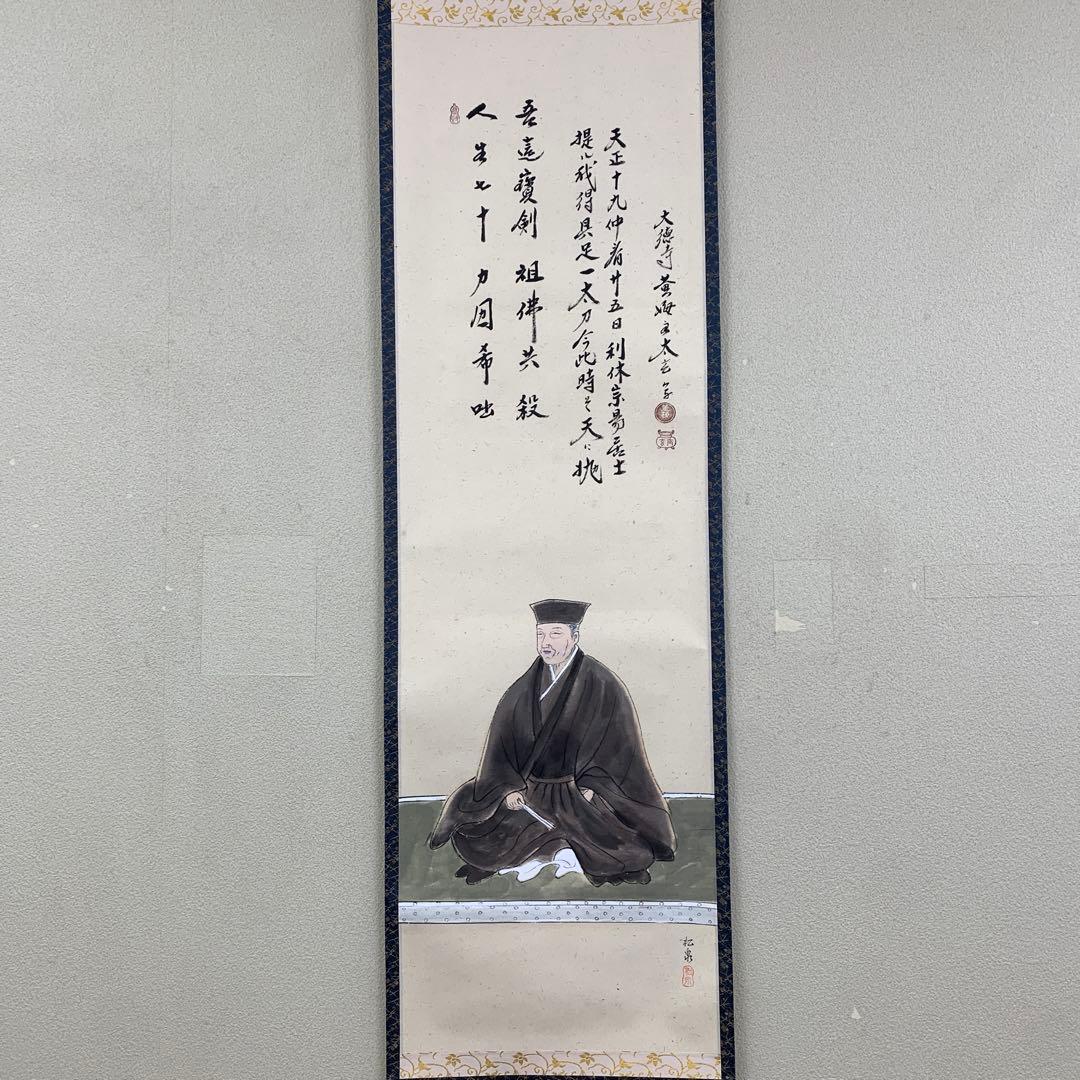 人生七十 力囲希咄
吾這寶剣 祖佛共殺
提ル我得具足一太刀今此時そ天に抛
天正十九仲春廿五日 利休宗易居士
大徳寺黄梅太玄
松泉